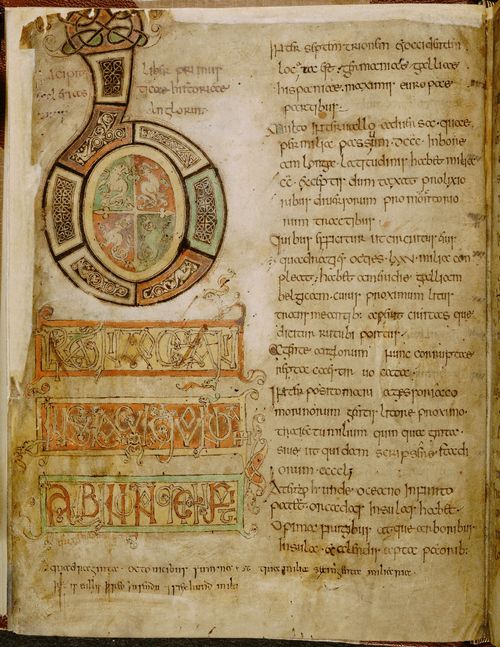 Incipit liber primus
ecclesiasticae historiae
anglorum
B
RITTANIA
INSULA CUI QUONDAM
ALBION NOMEN FUIT
inter septentrionem et occidentem
locata est · germaniae · galliae
hispaniae · maximis europae
partibus
Multo interuallo aduersa · quae
per milia passuum · dccc · in borea
longa · latitudinis habet milia
cc · exceptis dum taxat prolixio
ribus diuersorum promontorio
rum tractibus
Quibus efficitur ut circuitus eius
quadragies octies · lxxv · milia con
pleat · habet a meridie galliam
belgicam · cuius proximum litus
transmeantibus aperit ciuitas quae
dicitur rutubi portus
A gente anglorum nunc corrupte
reptacaestir uocata
Interposito mari a gessoriaco
morinorum gentis litore proximo
traiectu milium
siue ut quidam scripsere stadi
orum ccccl
A tergo unde oceano infinito
patet · orcadas insulas habet
Opima frugibus atque arboribus
insula · et alendis apta pecorib: